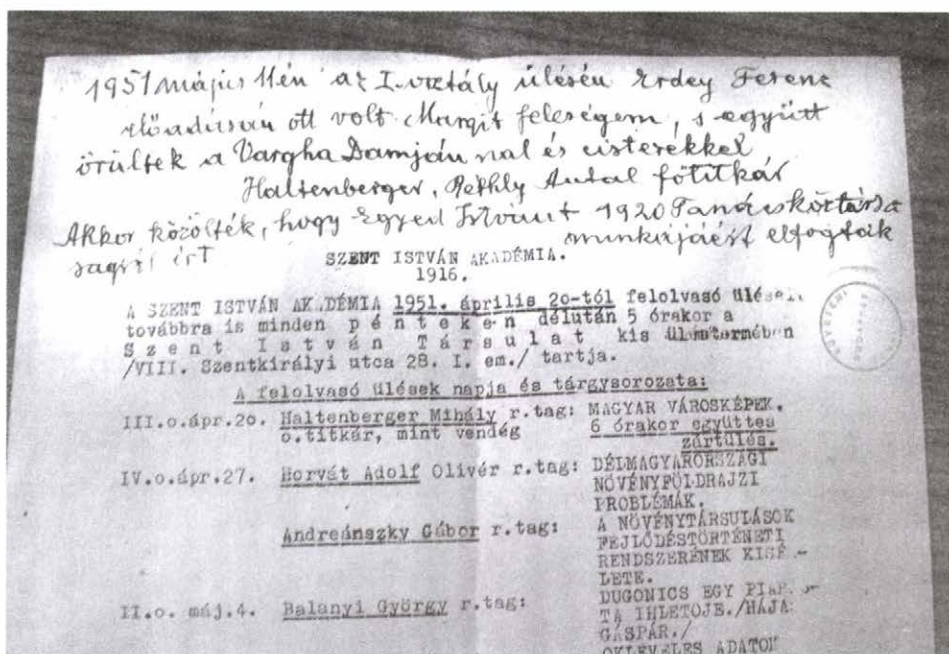 1951 május 11én az I. osztály ülésén Erdey Ferenc
előadásán ott volt Margit feleségem, s együtt
örültek a Vargha Damjánnal és cisterekkel
Haltenberger, Réthly Antal főtitkár
Akkor közölték, hogy Egyed Istvánt 1920 Tanácsköztársa
munkájáért elfogták
ságról írt
SZENT ISTVÁN AKADÉMIA.
1916.
A SZENT ISTVÁN AKADÉMIA 1951. április 20-tól felolvasó ülései
továbbra is minden p é n t e k e n délután 5 órakor a
S z e n t I s t v á n T á r s u l a t kis üléstermében
/VIII. Szentkirályi utca 28. I. em./ tartja.
A felolvasó ülések napja és tárgysorozata:
III.o.ápr.20. Haltenberger Mihály r.tag: MAGYAR VÁROSKÉPEK.
o.titkár, mint vendég 6 órakor együttes
zártülés.
IV.o.ápr.27. Horvát Adolf Olivér r.tag: DÉLMAGYARORSZÁGI
NÖVÉNYFÖLDRAJZI
PROBLÉMÁK.
Andreánszky Gábor r.tag: A NÖVÉNYTÁRSULÁSOK
FEJLŐDÉSTÖRTÉNETI
RENDSZERÉNEK KISÉ-
LETE.
II.o. máj.4. Balanyi György r.tag: DUGONICS EGY PIAR
TA IHLETŐJE./HÁJA
GÁSPÁR./
OKLEVELES ADATOK